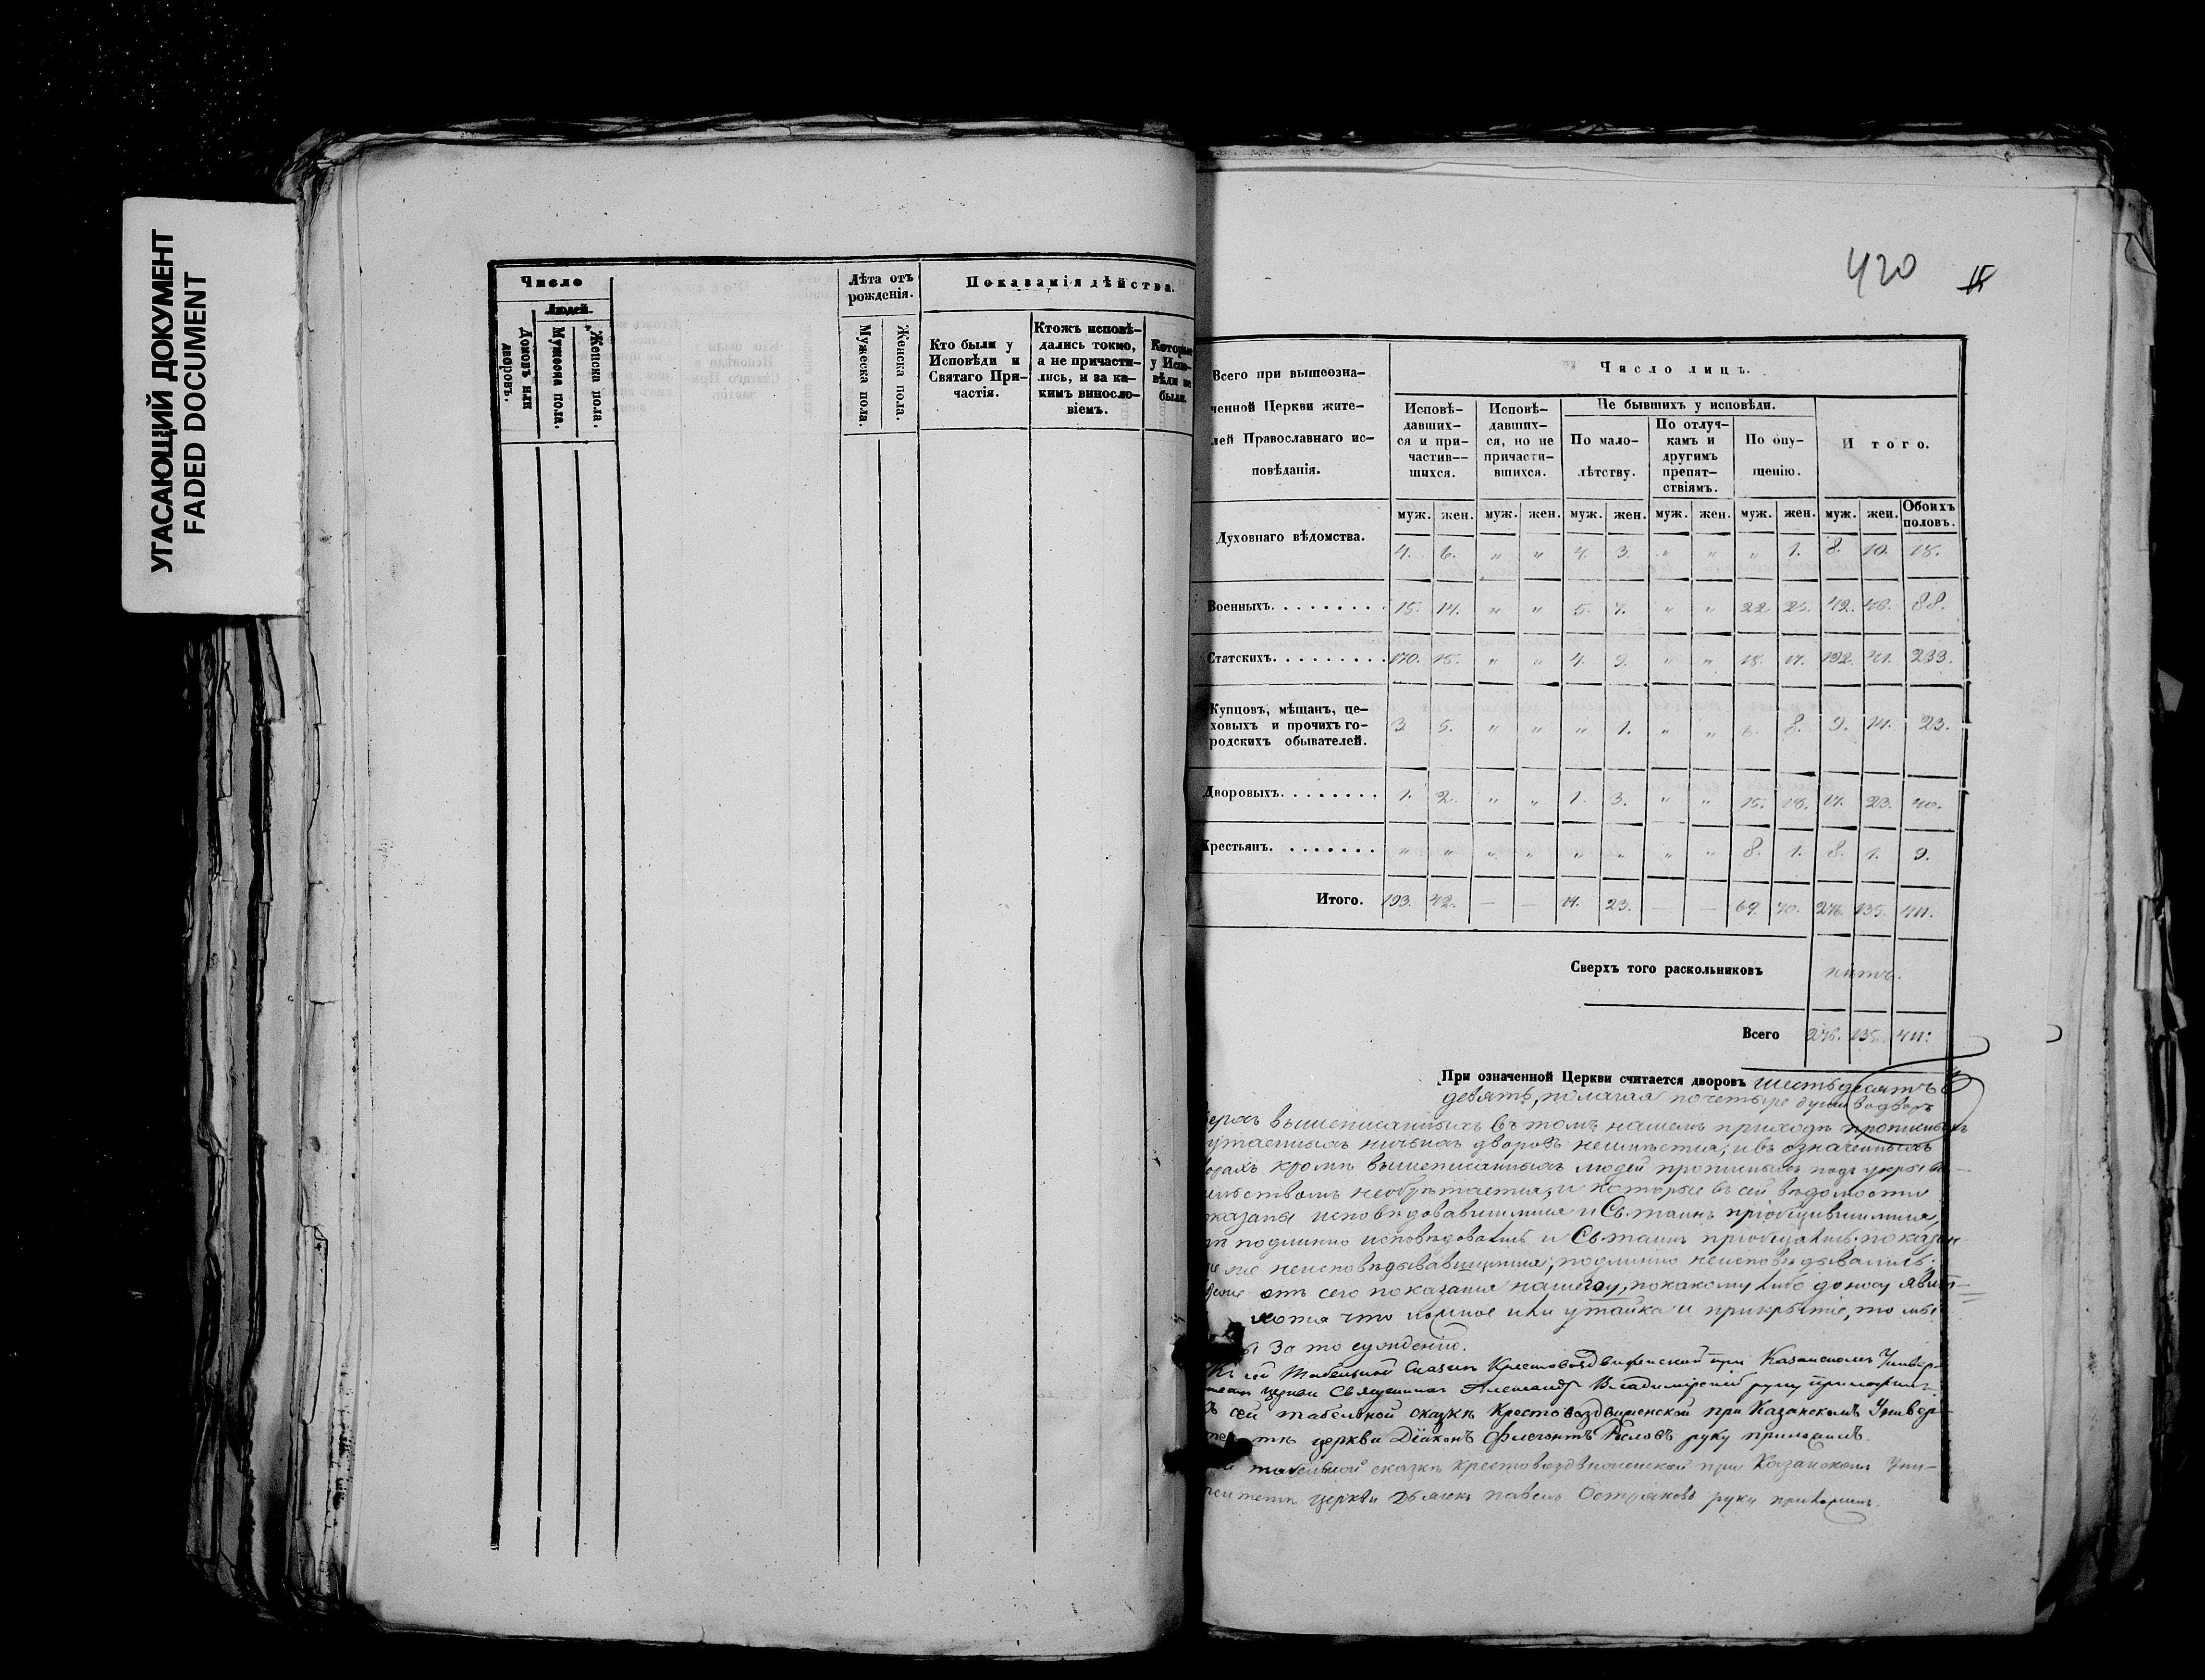 УГАСАЮЩИЙ ДОКУМЕНТ
FADED DOCUMENT
Число
Людей.
Домовъ или дворовъ.
Мужеска пола.
Женска пола.
Лѣта отъ рожденія.
Мужеска пола.
Женска пола.
Показанія дѣйства.
Кто были у
Исповѣди и
Святаго При-
частія.
Ктожъ исповѣ-
дались токмо,
а не причасти-
лись, и за ка-
кимъ винословіемъ.
Которые
у Испо-
вѣди не
были.
420
Всего при вышеозна-
ченной Церкви жите-
лей Православнаго ис-
повѣданія.
Число лицъ.
Исповѣ-
давших-
ся и при-
частив-
шихся.
Исповѣ-
давших-
ся, но не
причасти-
вшихся.
Не бывшихъ у исповѣди.
По мало-
лѣтству.
По отлуч-
камъ и
другимъ
препят-
ствіямъ.
По опу-
щенію.
Итого.
муж. жен. муж. жен. муж. жен. муж. жен. муж. жен. муж. жен. Обоихъ половъ.
Духовнаго вѣдомства. 4. 6. " " 4. 3. " " " 1. 8. 10. 18.
Военныхъ. 15. 14. " " 5. 7. " " 22 25. 42. 46. 88.
Статскихъ. 170. 15. " " 4. 9. " " 18. 17. 192. 41. 233.
Купцовъ, мѣщанъ, це-
ховыхъ и прочихъ го-
родскихъ обывателей. 3. 5. " " " 1. " " 6. 8. 9. 14. 23.
Дворовыхъ. 1. 2. " " 1. 3. " " 15. 18. 17. 23. 40.
Крестьянъ. " " " " " " " " 8. 1. 8. 1. 9.
Итого. 193. 42. — — 14. 23. — — 69. 70. 276. 135. 411.
Сверхъ того раскольниковъ нѣтъ.
Всего 276. 135. 411.
При означенной Церкви считается дворовъ шестьдесятъ
девять, полагая по четыре души во дворѣ
вышеписанныхъ въ томъ нашемъ приходѣ прописныхъ
утаенныхъ ничьихъ дворовъ неимѣется, и въ означенныхъ
кромѣ вышеписанныхъ людей прописныхъ подъ укры
необрѣтается, и которые въ сей вѣдомости
показаны исповѣдовавшимися и Св. Таинъ пріобщившимися,
подлинно исповѣдовались и Св. Таинъ пріобщались. показан
же неисповѣдывавшимися, подлинно неисповѣдывались.
отъ сего показанія нашего, по какому либо доносу явит
хотя что ложное или утайка и прикрытіе, то мы
за то сужденію.
Къ сей табельной сказкѣ Крестовоздвиженской при Казанскомъ Универ-
церкви Священникъ Александръ Владимірскій руку приложилъ.
сей табельной сказкѣ Крестовоздвиженской при Казанскомъ Универ-
церкви Діаконъ Флегонтъ руку приложилъ.
табельной сказкѣ Крестовоздвиженской при Казанскомъ Уни-
верситетѣ церкви Дьячекъ Павелъ Остряковъ руку приложилъ.